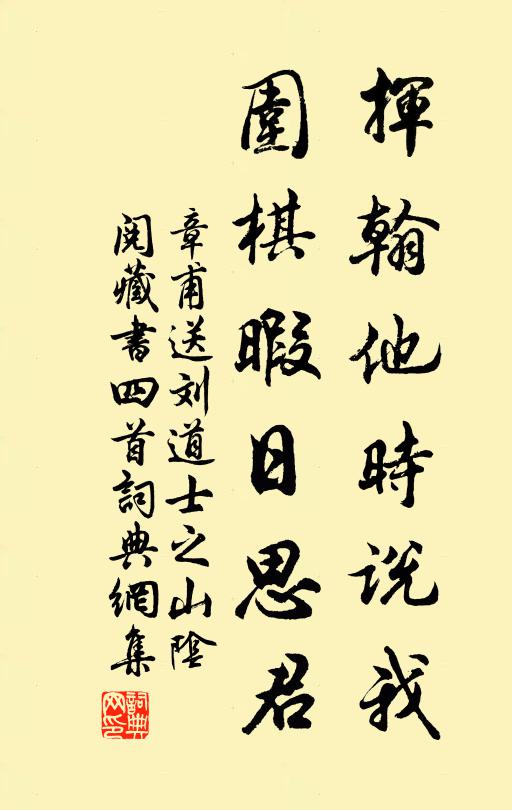 揮翰他時說我
圍棋暇日思君
章甫送刘道士之山陰
閱藏書四首詞典網集
詞典网印